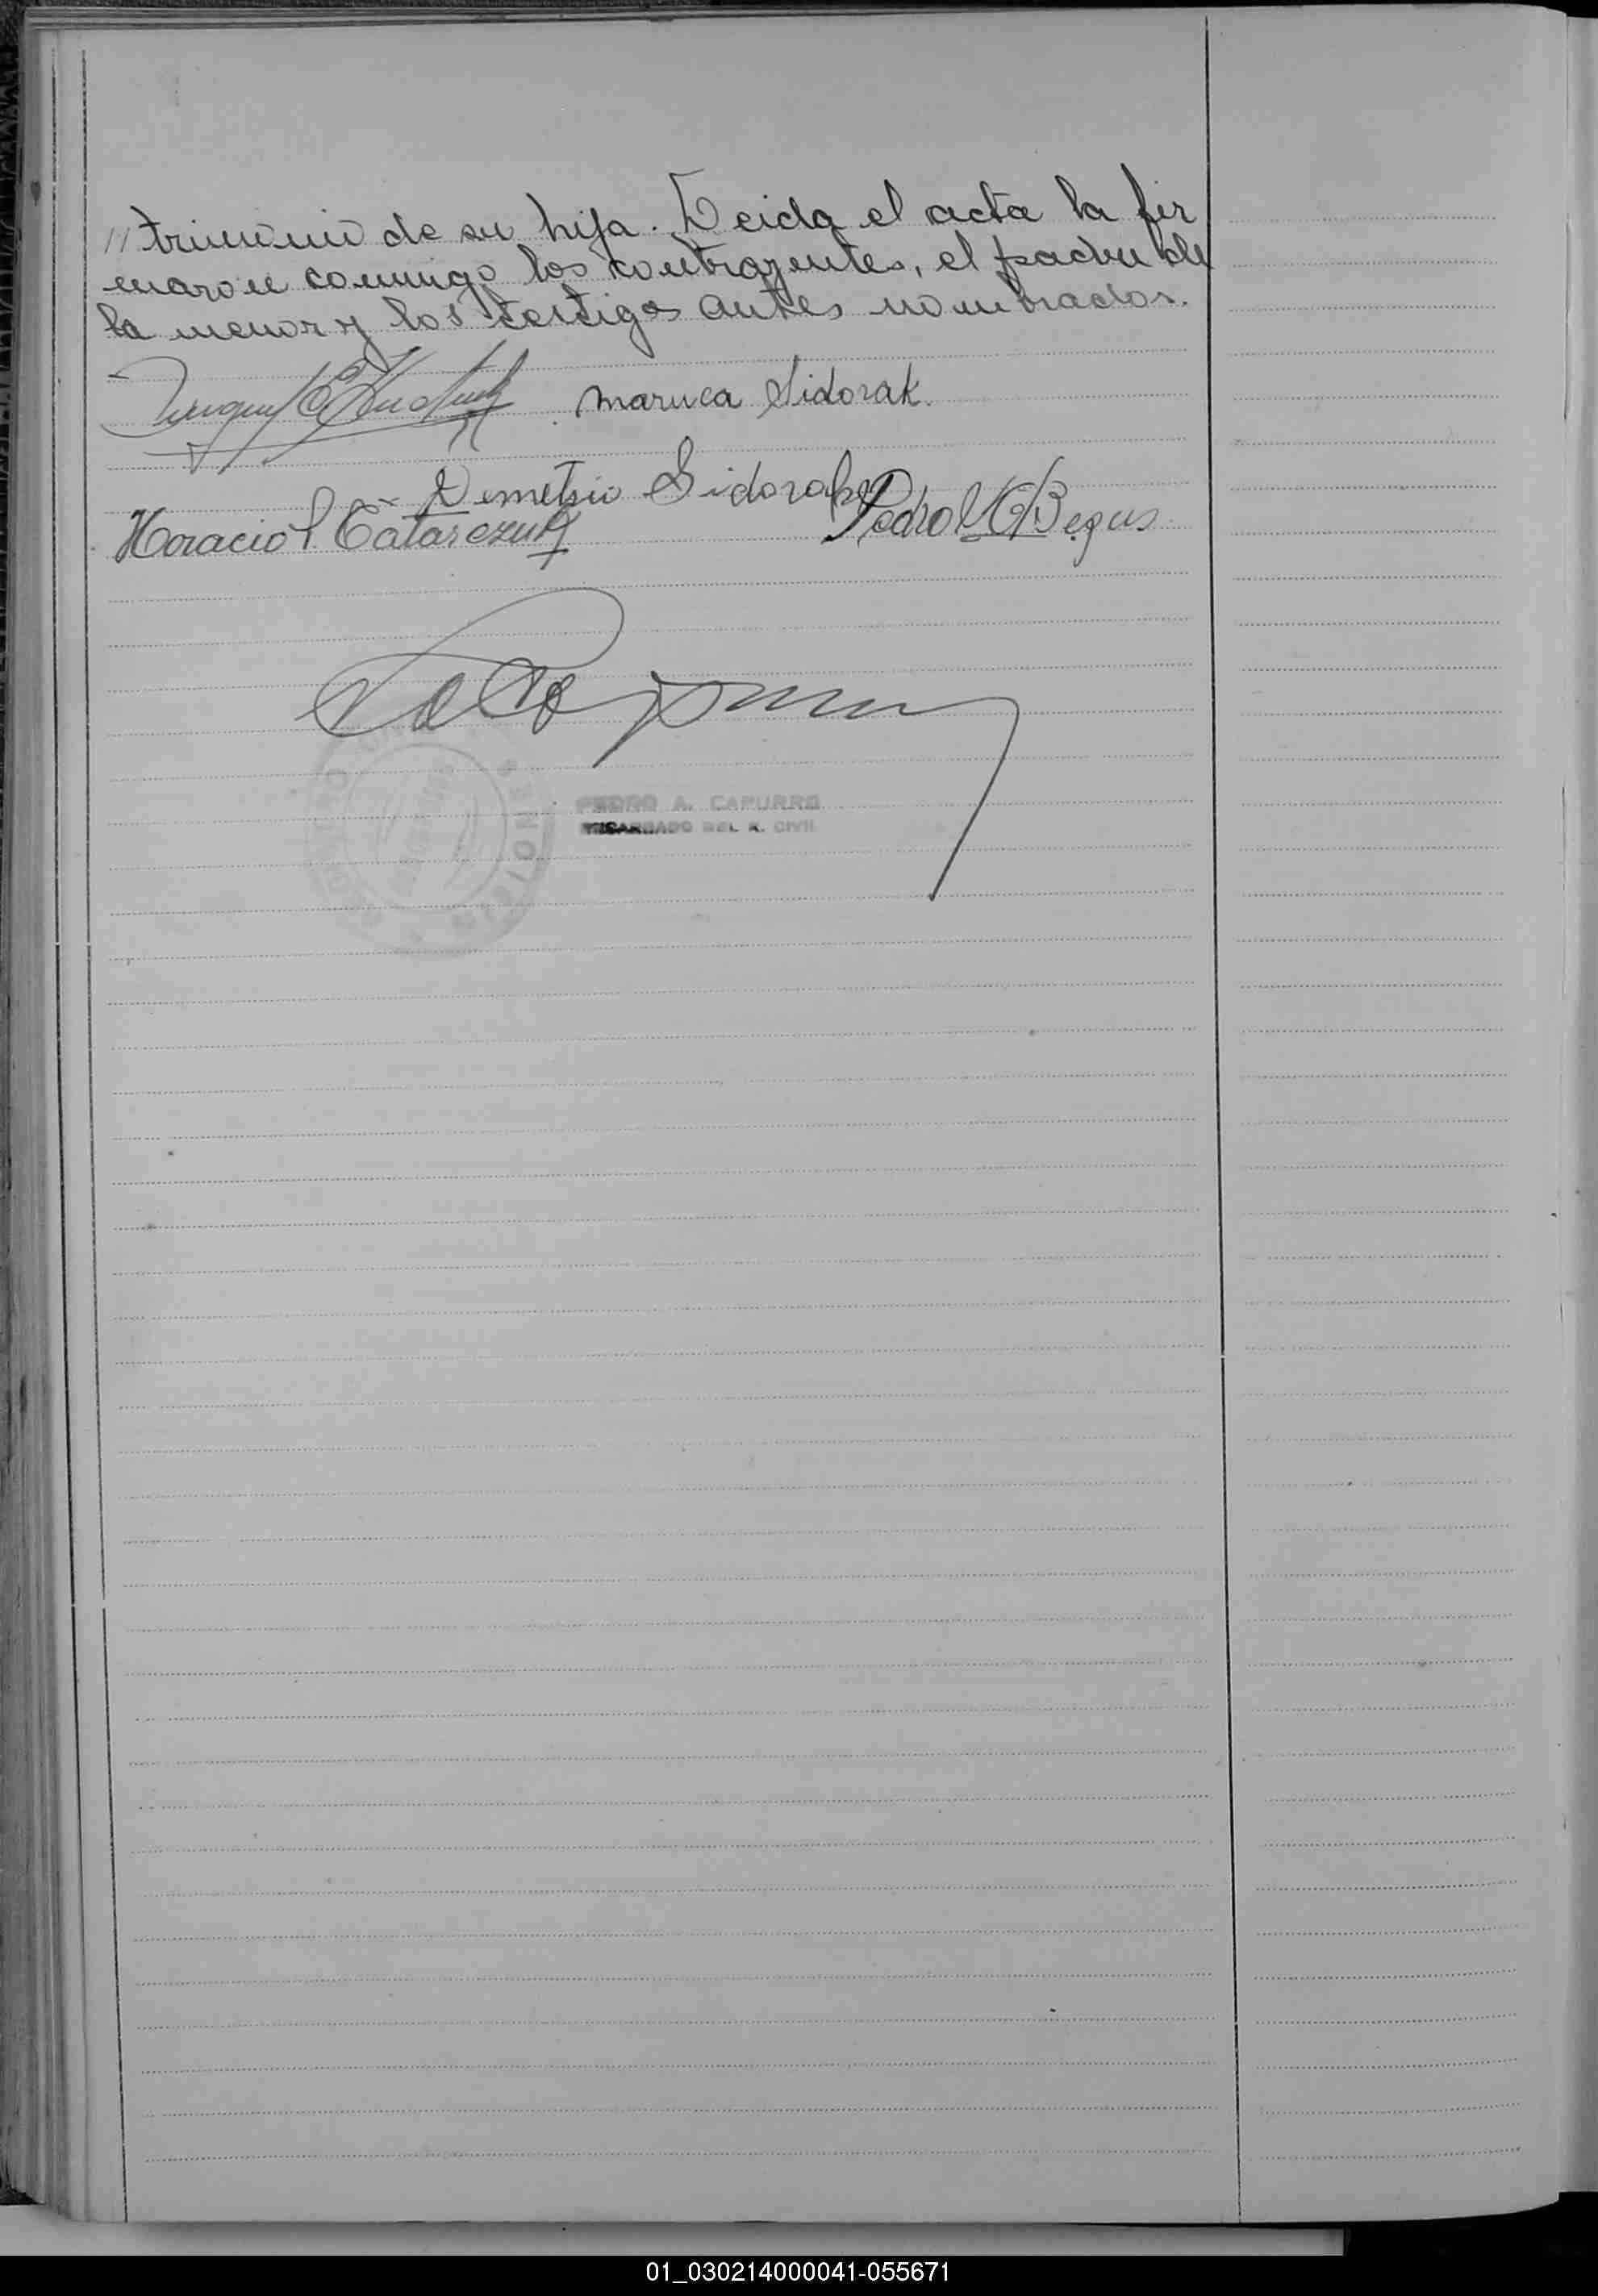 // trimonio de su hija. Leida el acta la fir
maron conmigo los contrayentes, el padre de
la menor y los testigos antes nombrados.
Maruca Sidorak.
Demetrio Sidorak
Horacio Catarczuk
Pedro Begus
PEDRO A. CAPURRO
ENCARGADO DEL R. CIVIL
01_030214000041-055671